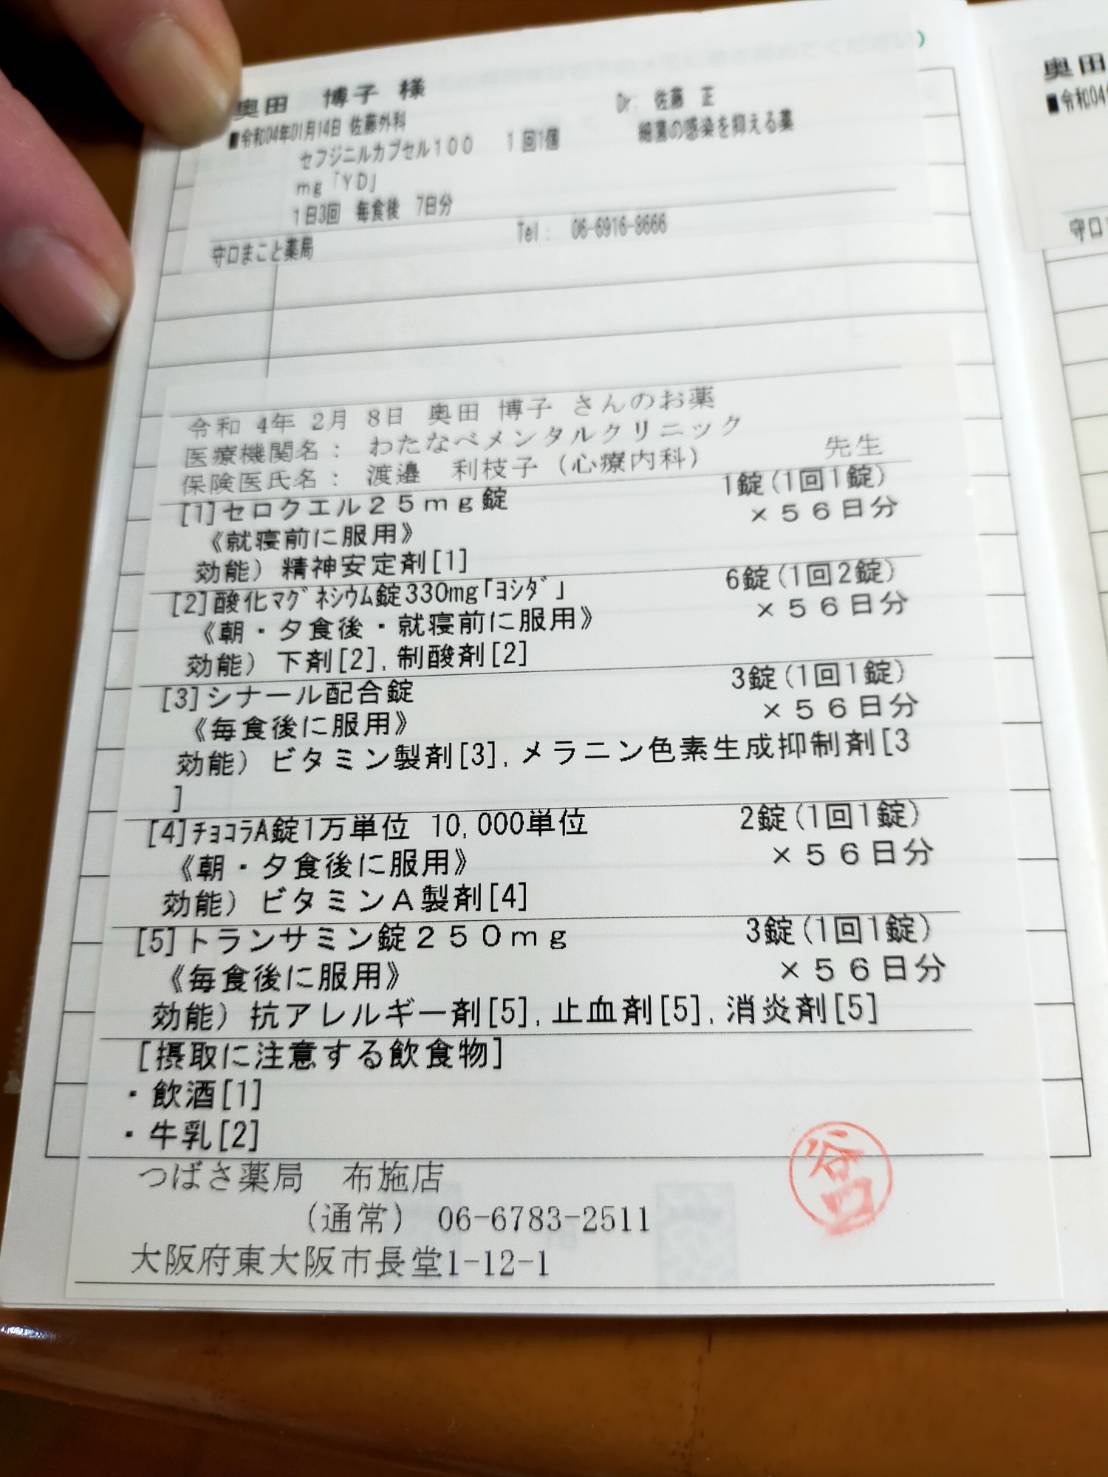 奥田 博子 様
Dr: 佐藤 正
■令和04年01月14日 佐藤外科
セフジニルカプセル100 1回1個 細菌の感染を抑える薬
mg「YD」
1日3回 毎食後 7日分
守口まこと薬局 Tel: 06-6916-8666
令和 4年 2月 8日 奥田 博子 さんのお薬
医療機関名: わたなべメンタルクリニック
保険医氏名: 渡邉 利枝子(心療内科) 先生
[1]セロクエル25mg錠 1錠(1回1錠)
《就寝前に服用》 ×56日分
効能) 精神安定剤[1]
[2]酸化マグネシウム錠330mg「ヨシダ」 6錠(1回2錠)
《朝・夕食後・就寝前に服用》 ×56日分
効能) 下剤[2],制酸剤[2]
[3]シナール配合錠 3錠(1回1錠)
《毎食後に服用》 ×56日分
効能) ビタミン製剤[3],メラニン色素生成抑制剤[3
]
[4]チョコラA錠1万単位 10,000単位 2錠(1回1錠)
《朝・夕食後に服用》 ×56日分
効能) ビタミンA製剤[4]
[5]トランサミン錠250mg 3錠(1回1錠)
《毎食後に服用》 ×56日分
効能) 抗アレルギー剤[5],止血剤[5],消炎剤[5]
[摂取に注意する飲食物]
・飲酒[1]
・牛乳[2]
つばさ薬局 布施店
(通常) 06-6783-2511
大阪府東大阪市長堂1-12-1
谷口
奥田
■令和04
守口